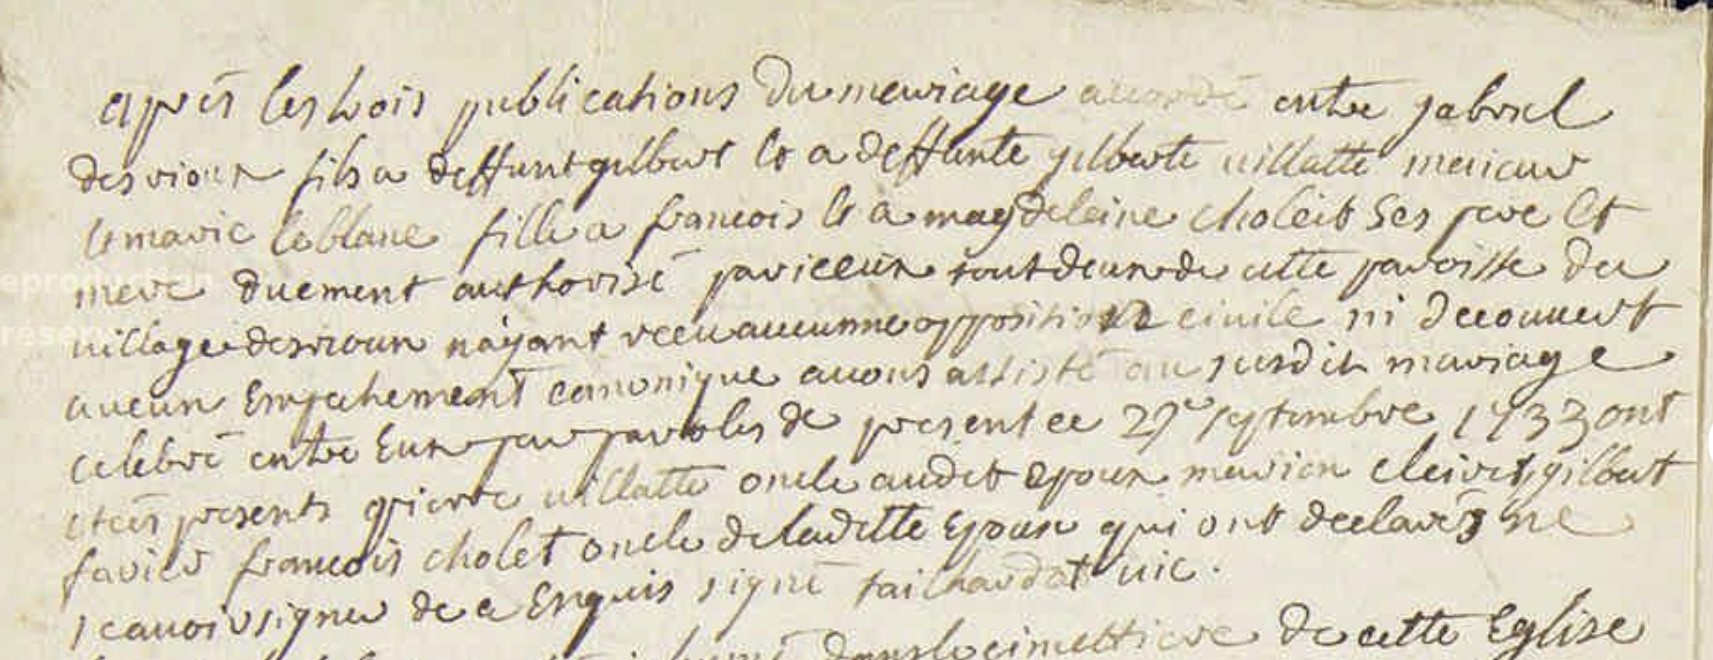 après les trois publications du mariage accordé entre gabriel
desrioux fils a deffunt gilbert et a deffunte gilberte uillatte mericur
et marie leblanc fille a francois et a magdeleine choleit Ses pere et
mere duement authorisé par iceux tout deux de cette paroisse du
uillage desrioux nayant receu aucunne opposition ciuile ni decouuert
aucun Empechement canonique auons assisté au susdit mariage
celebré entre Eux par paroles de present ce 27e septembre 1733 ont
etées presents pierre uillatte oncle audit epoux gilbert
favier francois cholet oncle de laditte Epouse qui ont declarés ne
scauoir signer de ce Enquis signé tailhardat uic.
inhumé dans le cimettiere de cette Eglise